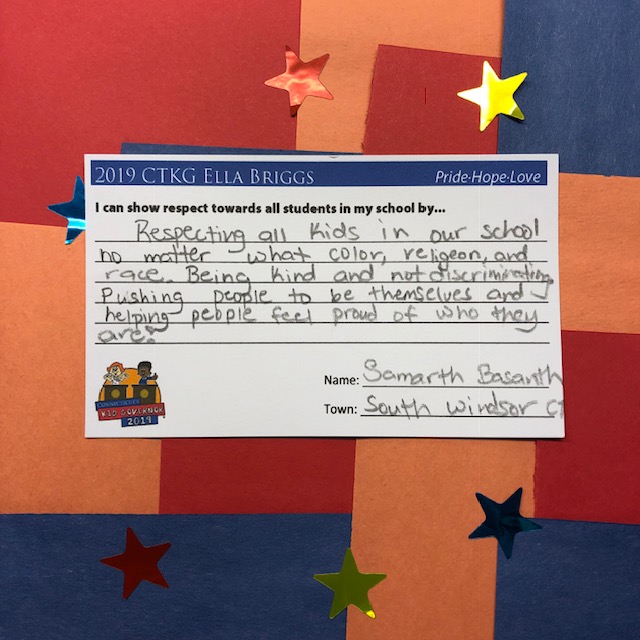 2019 CTKG ELLA BRIGGS
Pride·Hope·Love
I can show respect towards all students in my school by...
Respecting all kids in our school
no matter what color, religeon, and
race. Being kind and not discriminating.
Pushing people to be themselves and
helping people feel proud of who they
are!
Name: Samarth Basanth
Town: South Windsor CT
CONNECTICUT'S
KID GOVERNOR
2019